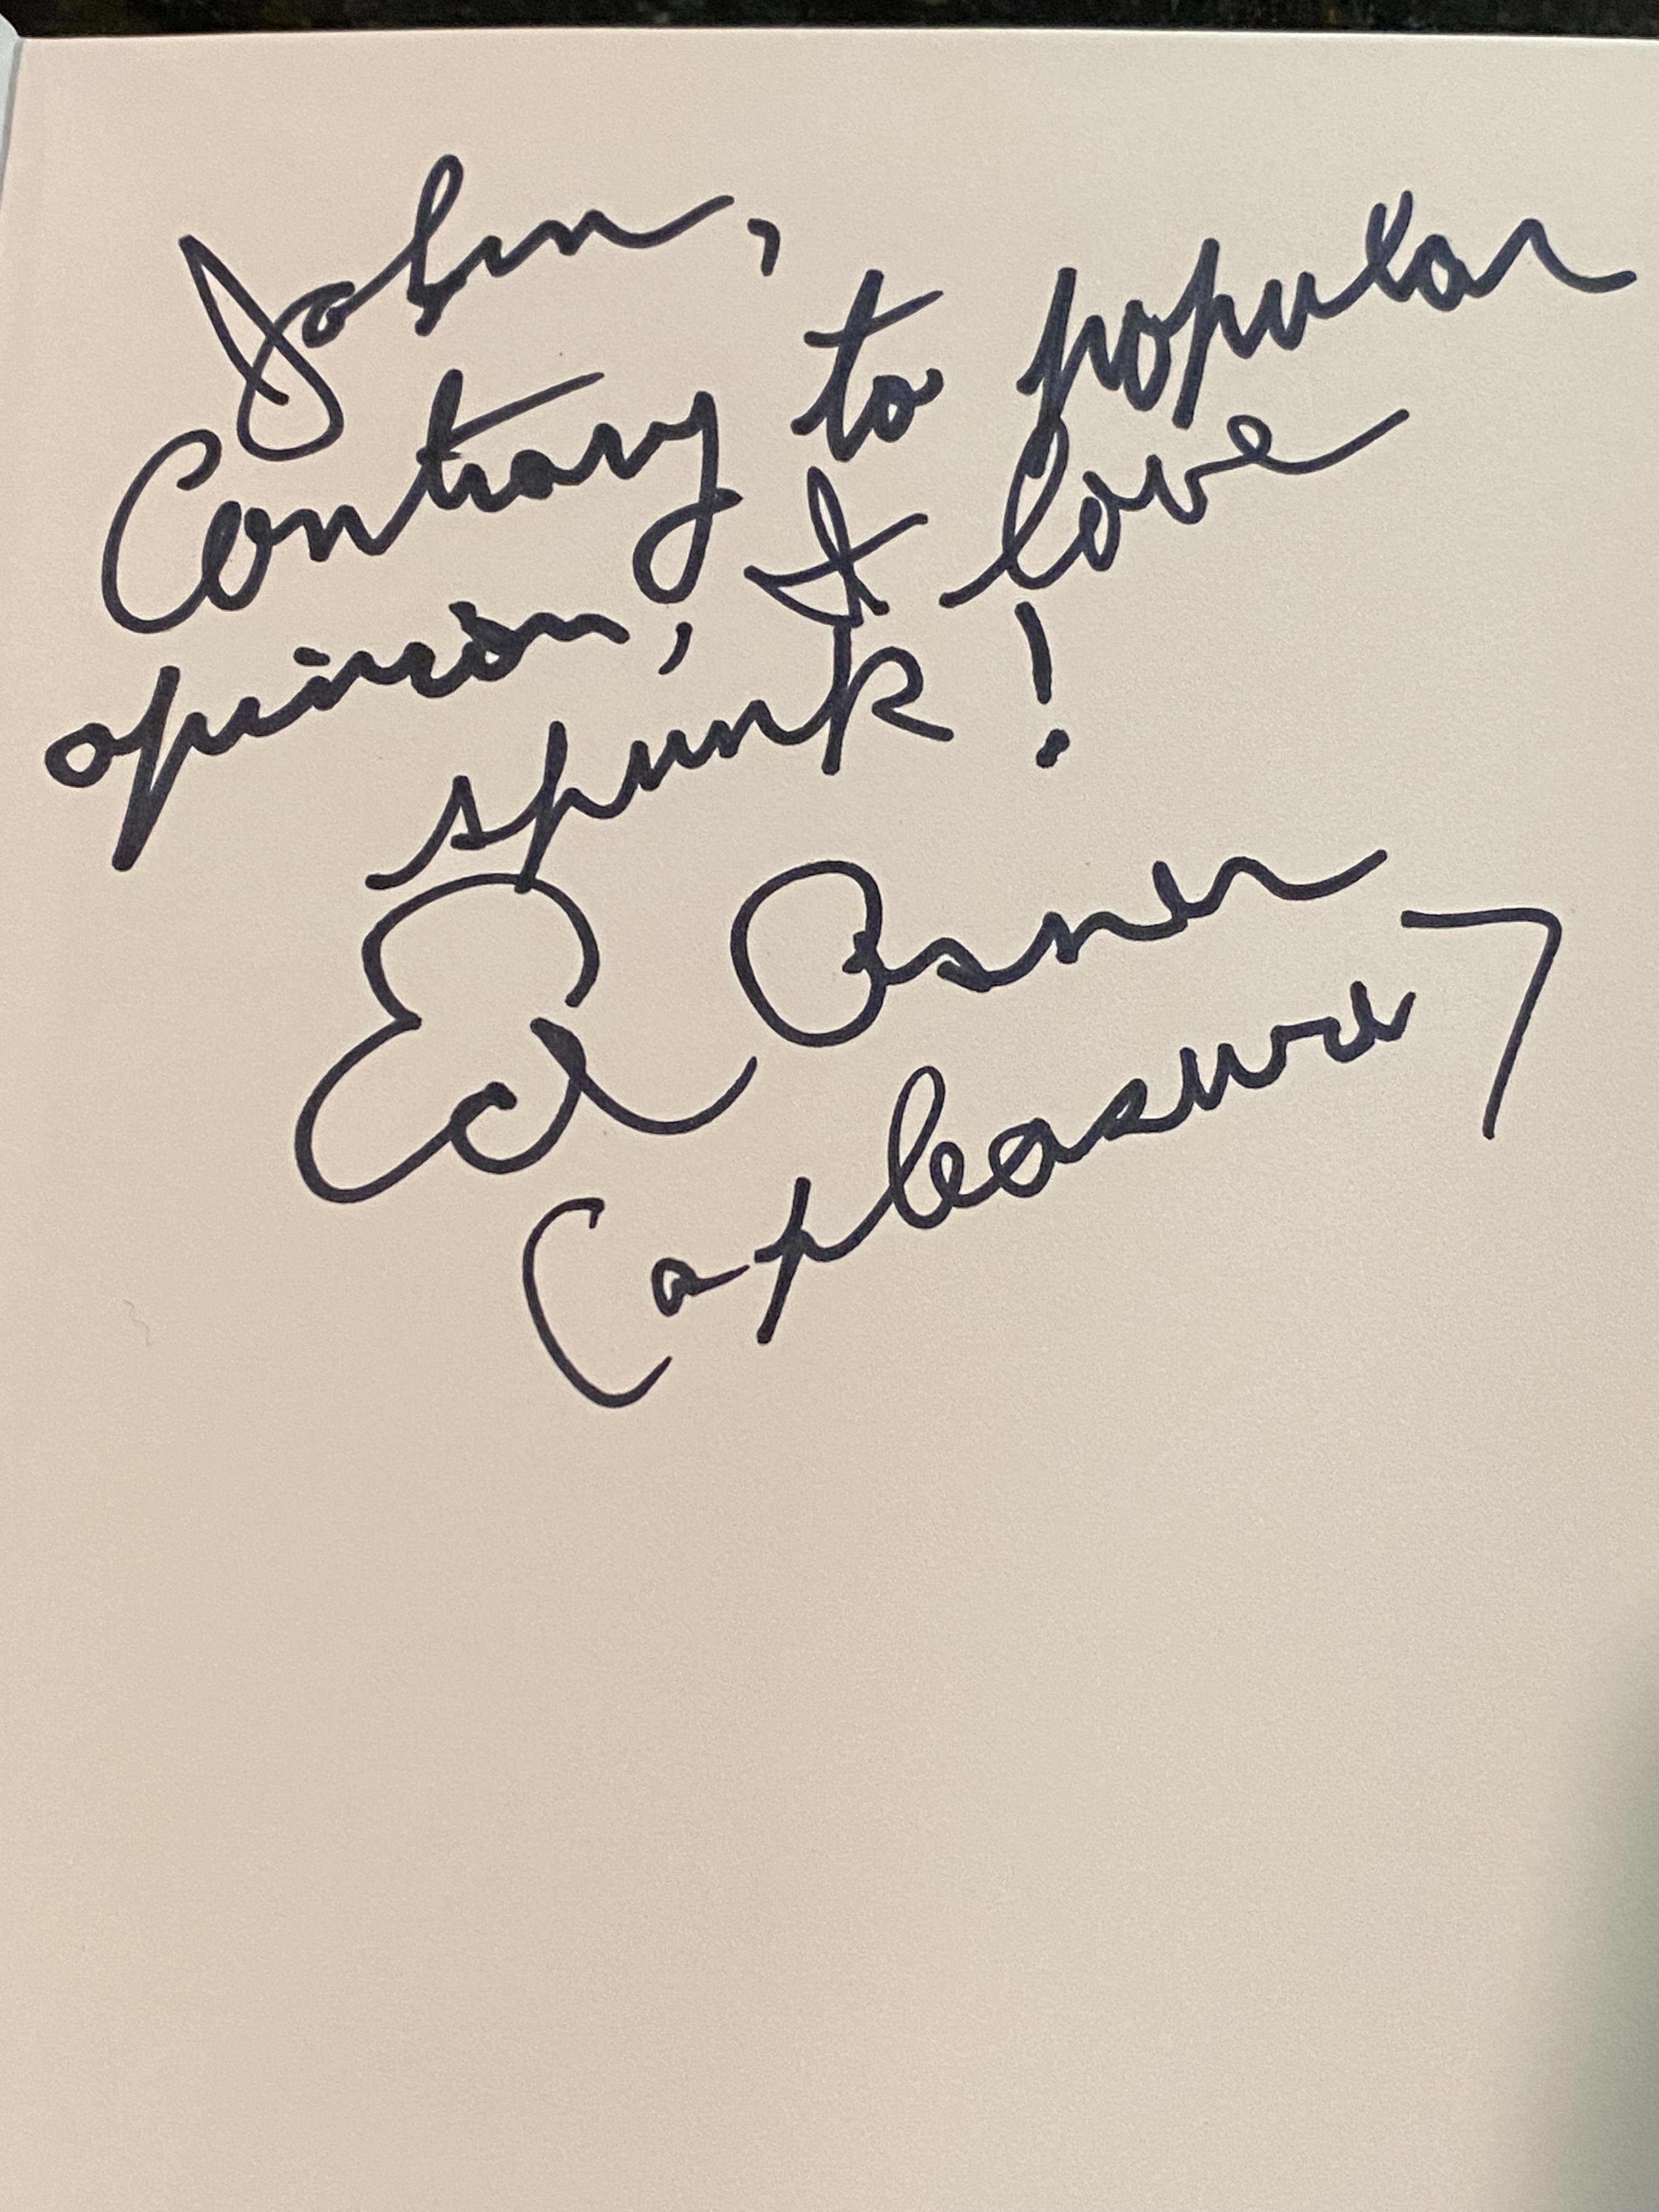 John,
Contrary to popular
opinion, I love
spunk!
Ed Asner
(a pleasure)